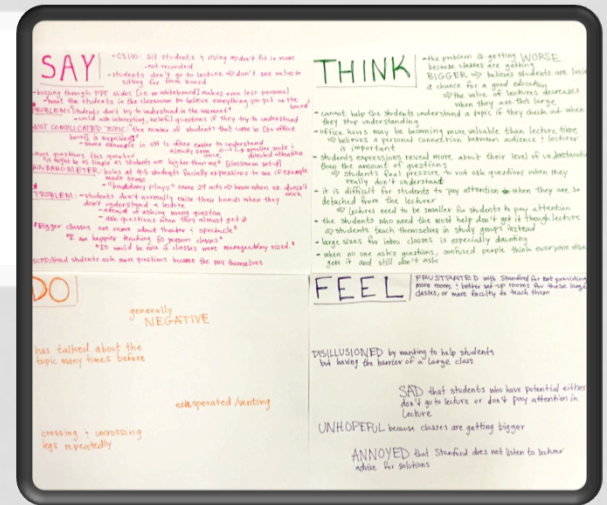 SAY
-CS110: 511 students & rising w/don't fit in room
-not recorded
-students don't go to lecture => don't see value in sitting far from board
-buzzing through PPT slides (i.e. no whiteboard) makes even less personal
-want the students in the classroom to believe everything I'm put on the board
PROBLEM: students don't try to understand in the moment
-would ask interesting, helpful questions if they try to understand
MOST COMPLICATED TOPIC: "the number of students that come to office hours is surprising"
-some example in OH is often easier to understand
-more questions than
already done once
smaller scale &
directed attention
"it might be as simple as students are higher than me" (classroom set-up)
OWN BAROMETER: looks at 4-5 students facially expressions to see if example made sense
"broadway plays" same
know when
doesn't work
PROBLEM: -students don't normally raise their hands when they don't understand a lecture
-afraid of asking wrong question
-ask questions when they almost get it
"Bigger classes are more about theater & spectacle"
"I am happier teaching 60 person classes"
"It would be nice if classes were more manageably sized."
SCPD/Grad students ask more questions because they pay themselves
THINK
-the problem is getting WORSE because classes are getting BIGGER => believes students are losing a chance for a good education
=> the value of lectures decreases when they are this large
-cannot help the students understand a topic if they check out when they stop understanding
-office hours may be becoming more valuable than lecture time
=> believes a personal connection between audience & lecturer is important
-students expressions reveal more about their level of understanding than the amount of questions
=> students feel pressure to not ask questions when they really don't understand
-it is difficult for students to pay attention when they are so detached from the lecturer
=> lectures need to be smaller for students to pay attention
-the students who need the most help don't get it through lecture
=> students teach themselves in study groups instead
-large sizes for intro classes is especially daunting
-when no one asks questions, confused people think everyone else gets it and still don't ask
DO
generally
NEGATIVE
has talked about the
topic many times before
exasperated/venting
crossing & uncrossing
legs repeatedly
FEEL
FRUSTRATED with Stanford for not providing
more rooms & better set-up rooms for these large
classes, or more faculty to teach them
DISILLUSIONED by wanting to help students
but having the barrier of a large class
SAD that students who have potential either
don't go to lecture or don't pay attention in
lecture
UNHOPEFUL because classes are getting bigger
ANNOYED that Stanford does not listen to lecturer
advise for solutions